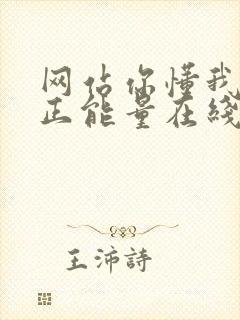 网站你懂我
正能量在线
王沛詩